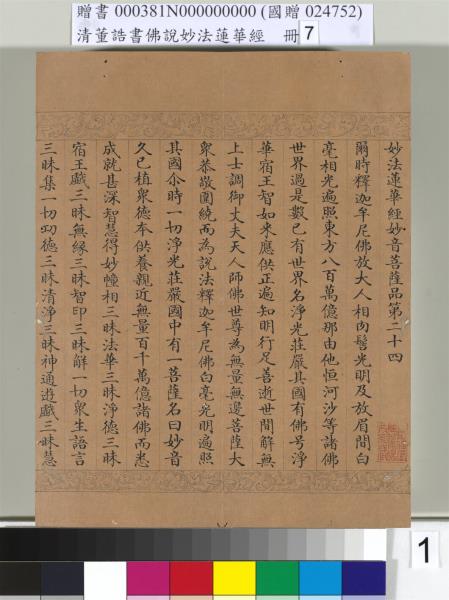 贈書 000381N000000000 (國贈 024752)
清董誥書佛說妙法蓮華經 冊 7
妙法蓮華經妙音菩薩品第二十四
爾時釋迦牟尼佛放大人相肉髻光明及放眉間白
毫相光遍照東方八百萬億那由他恒河沙等諸佛
世界過是數已有世界名淨光莊嚴其國有佛號淨
華宿王智如來應供正遍知明行足善逝世間解無
上士調御丈夫天人師佛世尊為無量無邊菩薩大
眾恭敬圍繞而為說法釋迦牟尼佛白毫光明遍照
其國尒時一切淨光莊嚴國中有一菩薩名曰妙音
久已植眾德本供養親近無量百千萬億諸佛而悉
成就甚深智慧得妙幢相三昧法華三昧淨德三昧
宿王戲三昧無緣三昧智印三昧解一切眾生語言
三昧集一切功德三昧清淨三昧神通遊戲三昧慧
1